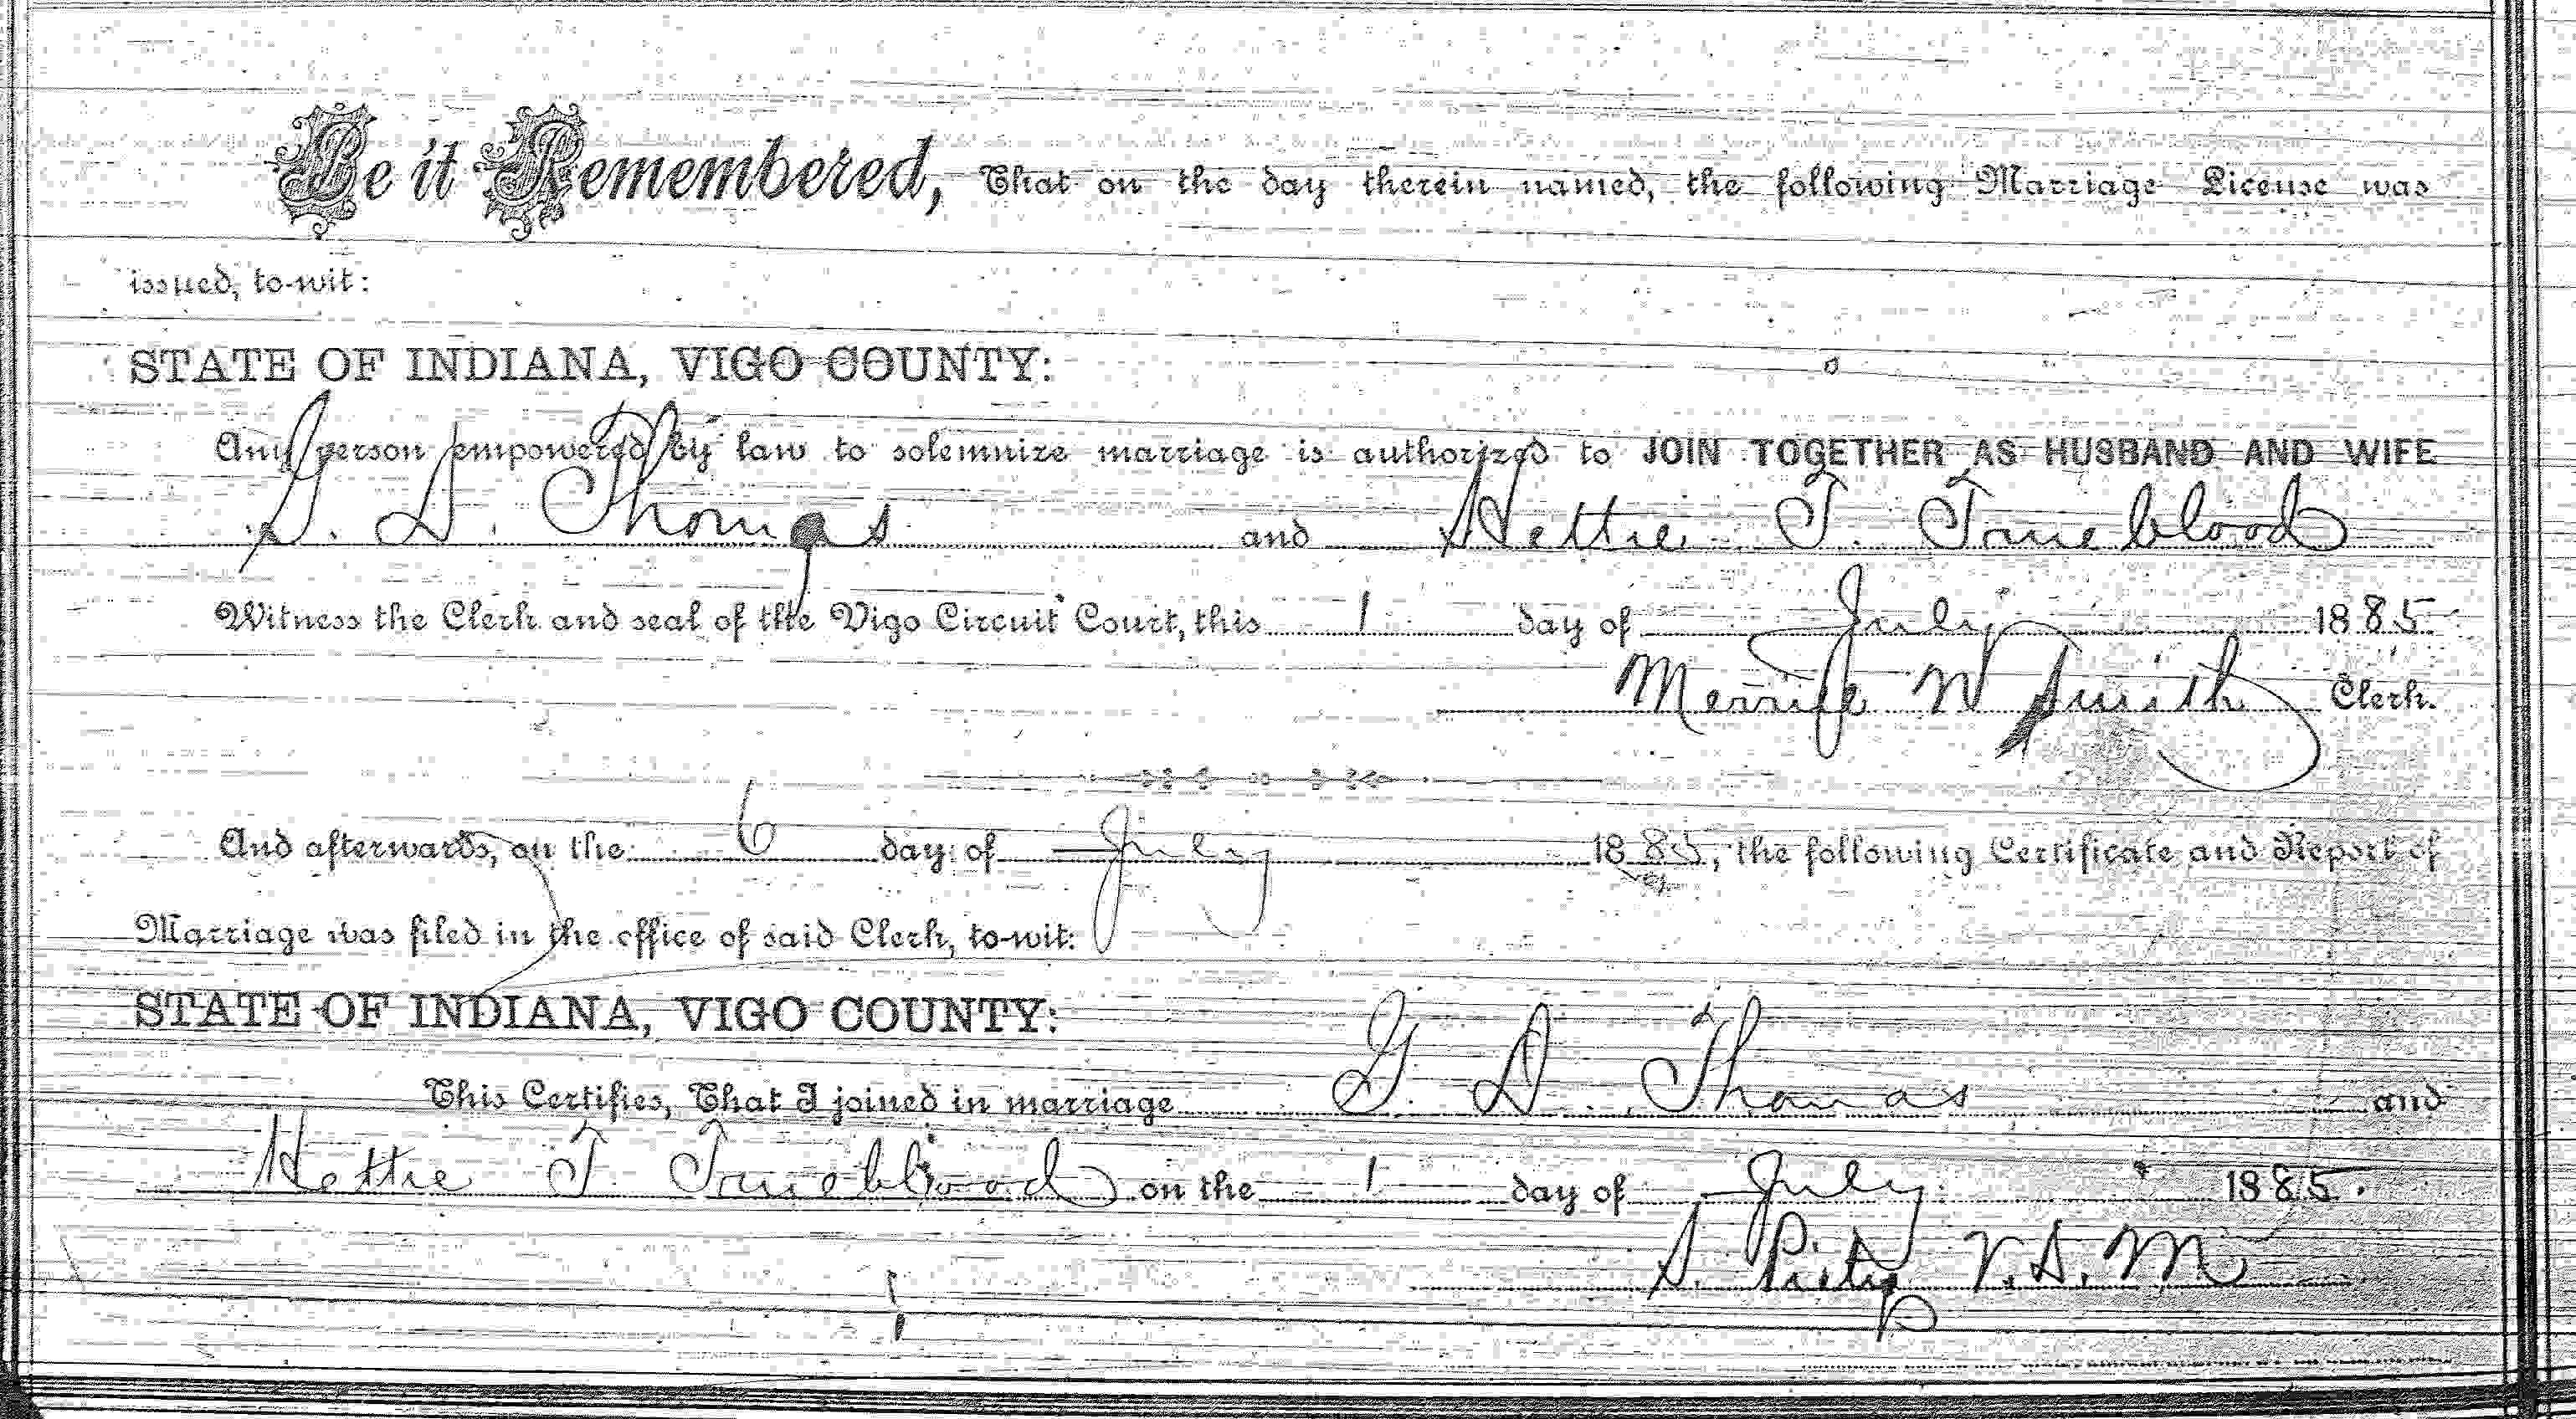 Be it Remembered, That on the day therein named, the following Marriage License was
issued, to-wit:
STATE OF INDIANA, VIGO COUNTY:
Any person empowered by law to solemnize marriage is authorized to JOIN TOGETHER AS HUSBAND AND WIFE
G. D. Thomas and Hettie T. Trueblood
Witness the Clerk and seal of the Vigo Circuit Court, this 1 day of July 1885
N Smith Clerk.
And afterwards, on the 6 day of July 1885, the following Certificate and Report of
Marriage was filed in the office of said Clerk, to-wit:
STATE OF INDIANA, VIGO COUNTY:
This Certifies, That I joined in marriage G. D. Thomas and
Hettie T Trueblood on the 1 day of July 1885.
S. Piety V. D. M